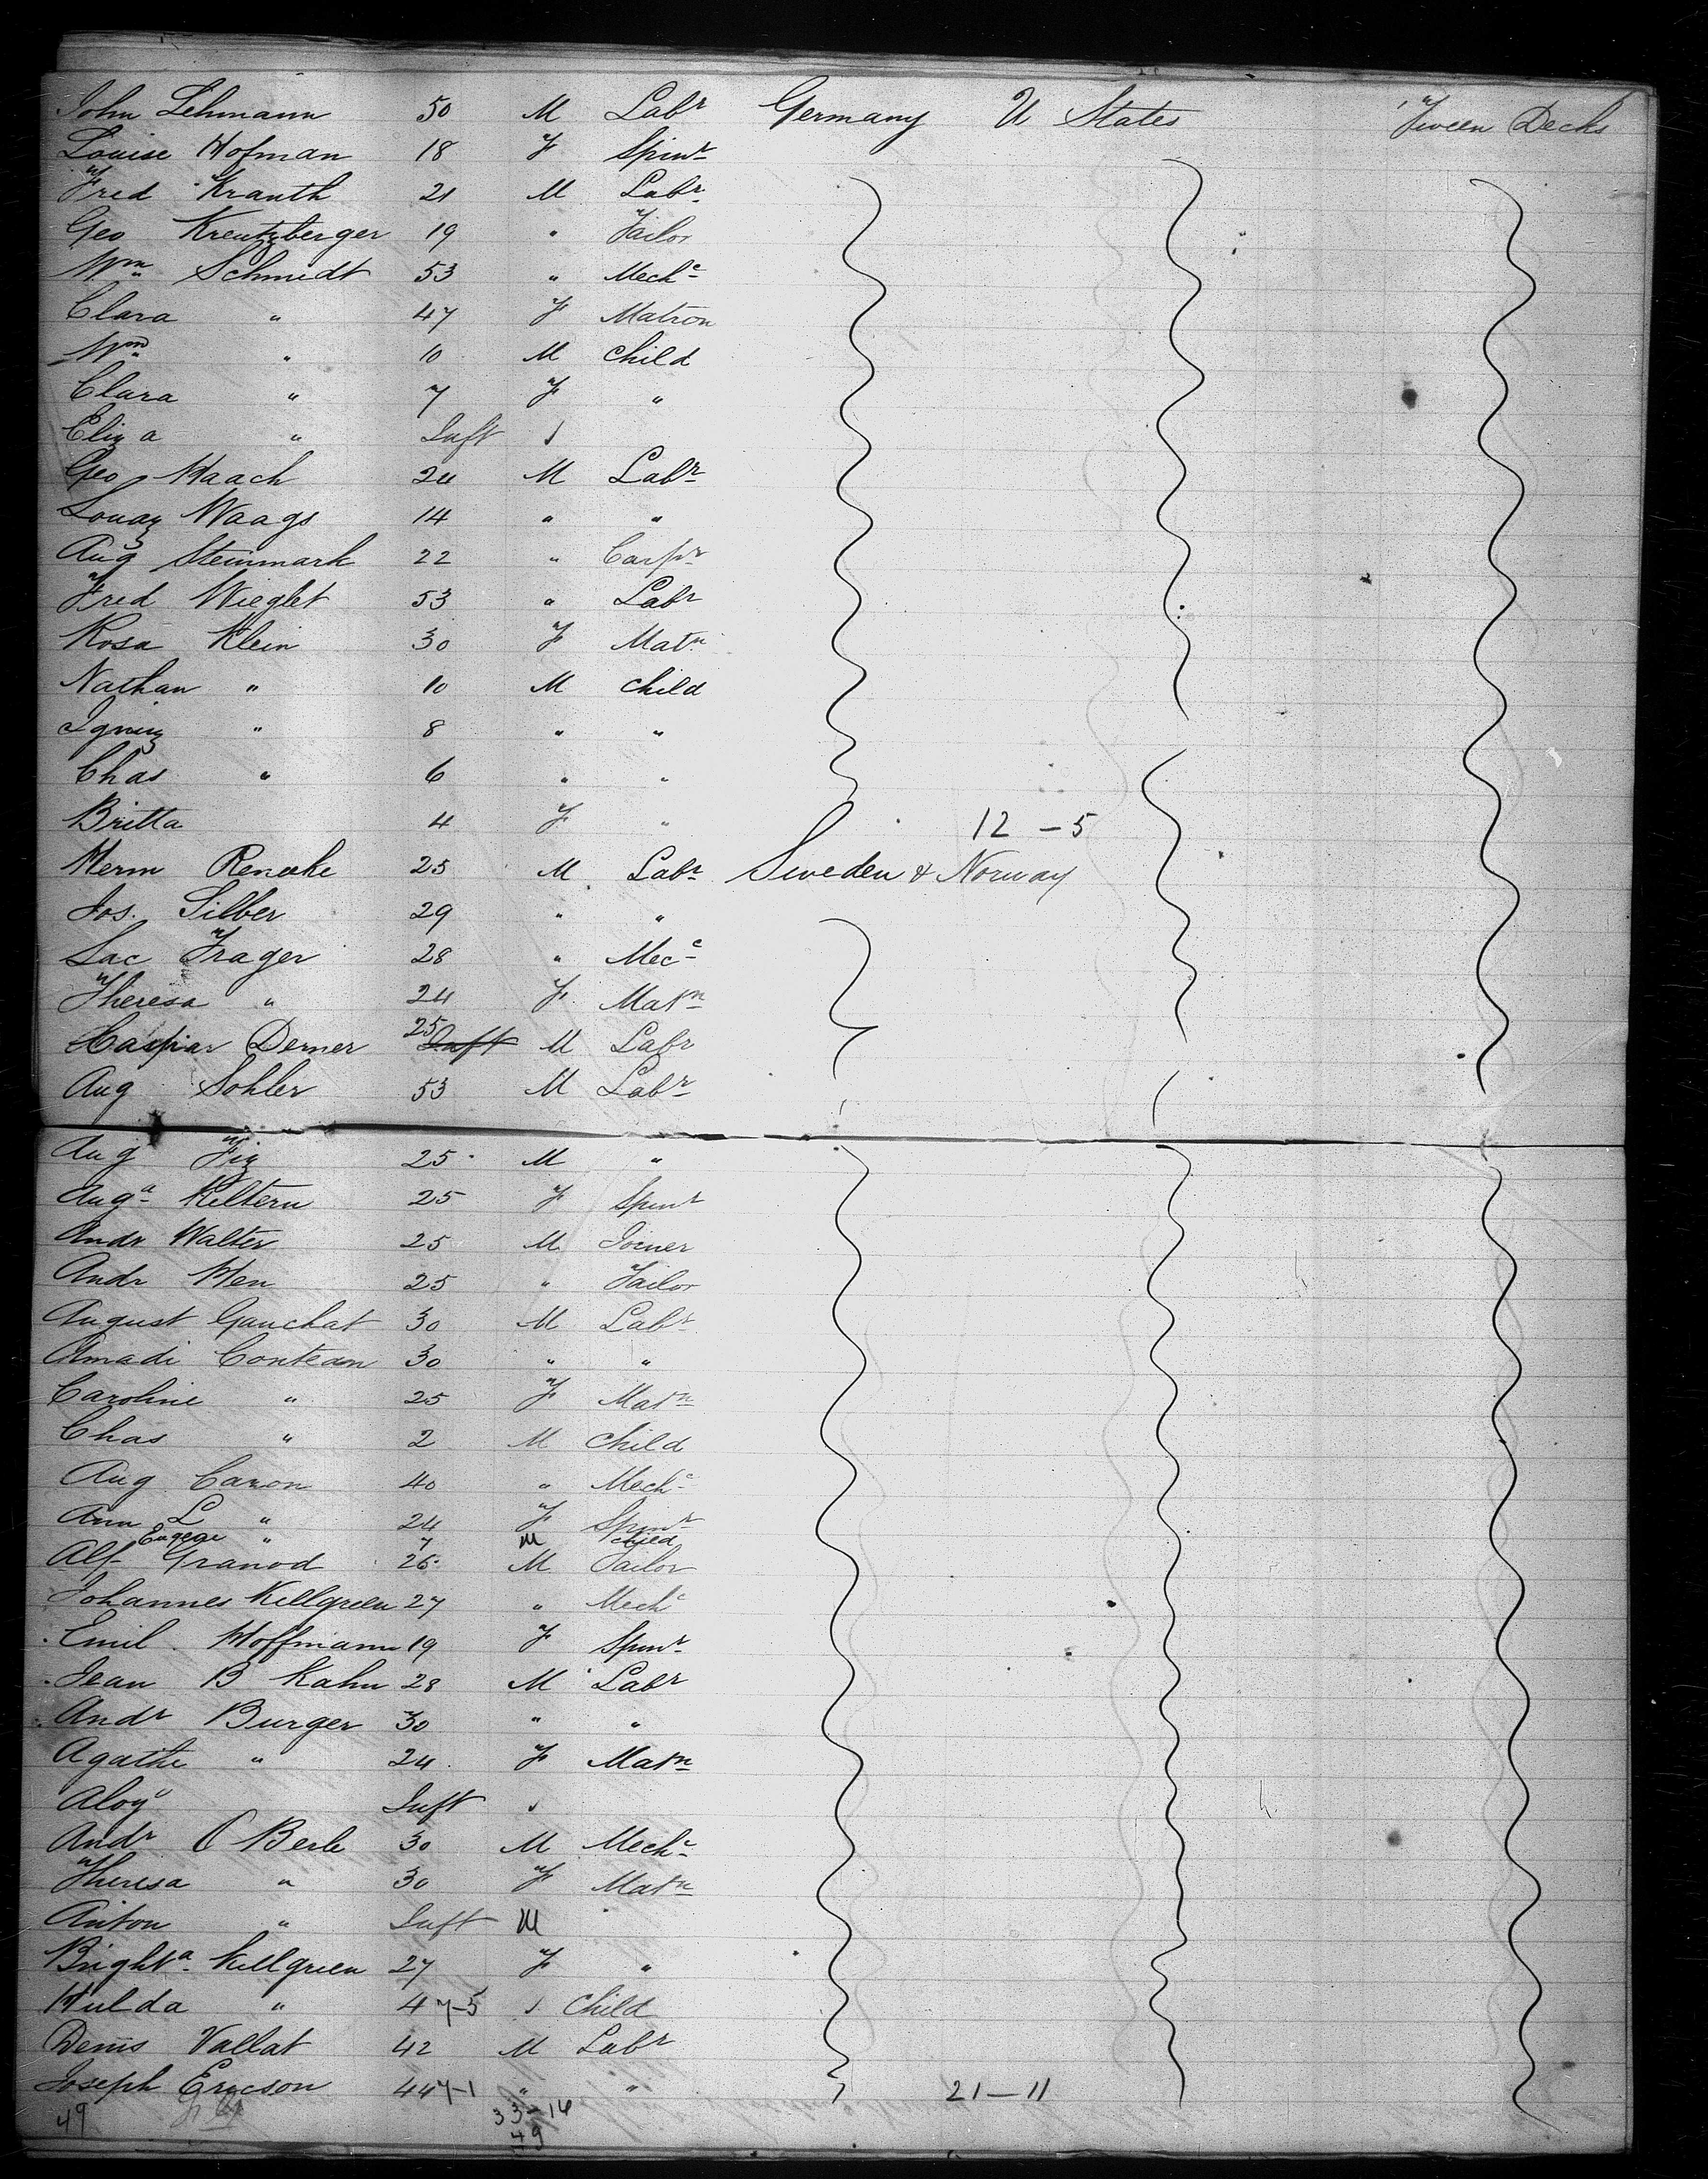 John Lehmann 50 M Labr Germany U States 'Tween Decks
Louise Hofman 18 F Spinr
Fred Krauth 21 M Labr
Geo Kreutzberger 19 " Tailor
Wm Schmidt 53 " Mechc
Clara " 47 F Matron
Wm " 10 M Child
Clara " 7 F "
Eliza " Inft
Geo Haach 24 M Labr
Louaz Waags 14 " "
Aug Steinmark 22 " Carpr
Fred Wieglet 53 " Labr
Rosa Klein 30 F Matn
Nathan " 10 M child
Igniz " 8 " "
Chas " 6 " "
Britta 4 F " 12 - 5
Herm Reneeke 25 M Labr Sweden & Norway
Jos. Silber 29 " "
Sac Trager 28 " Mecc
Theresa " 24 F Matn
Caspar Demer 25 Inft M Labr
Aug Sohler 53 M Labr
Aug Fiz 25 M "
Auga Kiltern 25 F Spinr
Andr Walter 25 M Joiner
Andr Hen 25 " Tailor
August Gauchat 30 M Labr
Amadi Conteam 30 " "
Caroline " 25 F Matn
Chas " 2 M Child
Aug Caron 40 " Mechc
Ann L " 24 F Spinr
Eugene " 7 M child
Alf Granod 26 M Tailor
Johannes Killgreen 27 " Mechc
Emil Hoffmann 19 F Spinr
Jean B Kahn 28 M Labr
Andr Burger 30 " "
Agathe " 24 F Matn
Aloy " Inft
Andr O Berle 30 M Mechc
Theresa " 30 F Matn
Anton " Inft M
Brighta Killgreen 27 F "
Hulda " 4 7-5 Child
Denis Vallat 42 M Labr
Joseph Ericson 44 7-1 " " 21 - 11
49 33-16
49